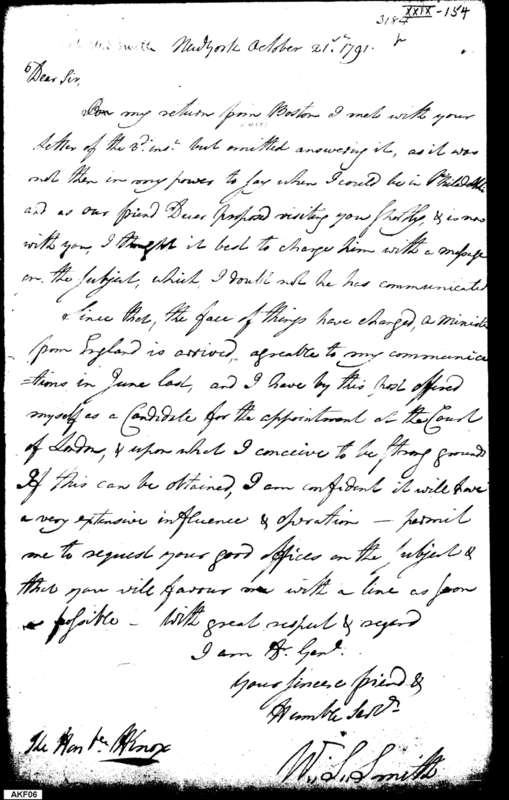 XXIX-154
3184
Smith New York October 21st. 1791.
Dear Sir,
On my return from Boston I met with your
Letter of the 3d. inst. but omitted answering it, as it was
not then in my power to say when I could be in Philadel
and as our friend Duer proposed visiting you shortly, & is now
with you, I thought it best to charge him with a message
on the subject, which, I doubt not he has communicated
Since that, the face of things have changed, a Minister
from England is arrived, agreable to my communica
=tions in June last, and I have by this post offered
myself as a Candidate for the appointment at the Court
of London, & upon what I conceive to be strong grounds
If this can be obtained, I am confident it will have
a very extensive influence & operation — permit
me to request your good offices on the subject &
that you will favour me with a line as soon
as possible — With great respect & regard
I am Dr. Genl.
Your sincere friend &
Humble Servt.
The Honble. HKnox
W. S. Smith
AKF06